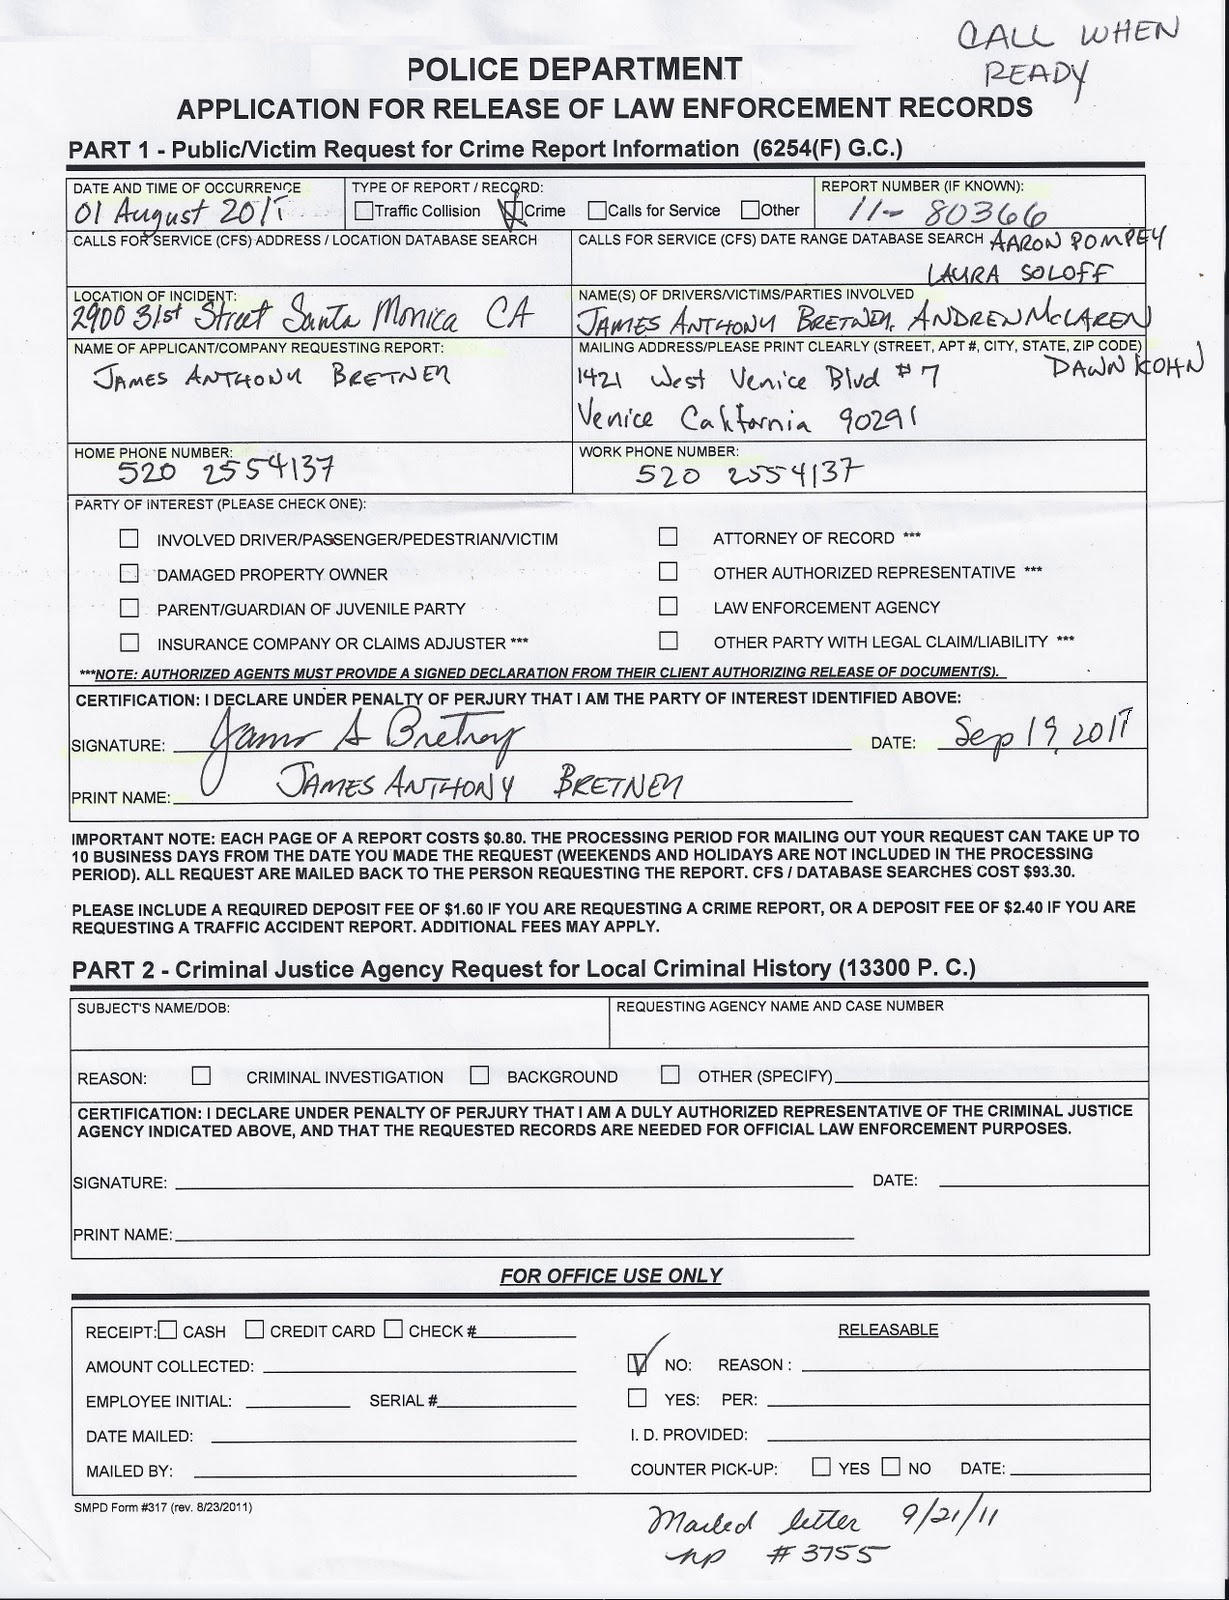 CALL WHEN
READY
POLICE DEPARTMENT
APPLICATION FOR RELEASE OF LAW ENFORCEMENT RECORDS
PART 1 - Public/Victim Request for Crime Report Information (6254(F) G.C.)
DATE AND TIME OF OCCURRENCE TYPE OF REPORT / RECORD: REPORT NUMBER (IF KNOWN):
01 August 2011 Traffic Collision Crime Calls for Service Other 11-80366
CALLS FOR SERVICE (CFS) ADDRESS / LOCATION DATABASE SEARCH CALLS FOR SERVICE (CFS) DATE RANGE DATABASE SEARCH AARON POMPEY
LAURA SOLOFF
LOCATION OF INCIDENT: NAME(S) OF DRIVERS/VICTIMS/PARTIES INVOLVED
2900 31st Street Santa Monica CA JAMES ANTHONY BRETNEY, ANDREW MCLAREN
NAME OF APPLICANT/COMPANY REQUESTING REPORT: MAILING ADDRESS/PLEASE PRINT CLEARLY (STREET, APT #, CITY, STATE, ZIP CODE)
DAWN KOHN
JAMES ANTHONY BRETNEY 1421 West Venice Blvd #7
Venice California 90291
HOME PHONE NUMBER: WORK PHONE NUMBER:
520 2554137 520 2554137
PARTY OF INTEREST (PLEASE CHECK ONE):
INVOLVED DRIVER/PASSENGER/PEDESTRIAN/VICTIM ATTORNEY OF RECORD ***
DAMAGED PROPERTY OWNER OTHER AUTHORIZED REPRESENTATIVE ***
PARENT/GUARDIAN OF JUVENILE PARTY LAW ENFORCEMENT AGENCY
INSURANCE COMPANY OR CLAIMS ADJUSTER *** OTHER PARTY WITH LEGAL CLAIM/LIABILITY ***
***NOTE: AUTHORIZED AGENTS MUST PROVIDE A SIGNED DECLARATION FROM THEIR CLIENT AUTHORIZING RELEASE OF DOCUMENT(S).
CERTIFICATION: I DECLARE UNDER PENALTY OF PERJURY THAT I AM THE PARTY OF INTEREST IDENTIFIED ABOVE:
SIGNATURE: James A Bretney DATE: Sep 19, 2011
PRINT NAME: JAMES ANTHONY BRETNEY
IMPORTANT NOTE: EACH PAGE OF A REPORT COSTS $0.80. THE PROCESSING PERIOD FOR MAILING OUT YOUR REQUEST CAN TAKE UP TO
10 BUSINESS DAYS FROM THE DATE YOU MADE THE REQUEST (WEEKENDS AND HOLIDAYS ARE NOT INCLUDED IN THE PROCESSING
PERIOD). ALL REQUEST ARE MAILED BACK TO THE PERSON REQUESTING THE REPORT. CFS / DATABASE SEARCHES COST $93.30.
PLEASE INCLUDE A REQUIRED DEPOSIT FEE OF $1.60 IF YOU ARE REQUESTING A CRIME REPORT, OR A DEPOSIT FEE OF $2.40 IF YOU ARE
REQUESTING A TRAFFIC ACCIDENT REPORT. ADDITIONAL FEES MAY APPLY.
PART 2 - Criminal Justice Agency Request for Local Criminal History (13300 P. C.)
SUBJECT'S NAME/DOB: REQUESTING AGENCY NAME AND CASE NUMBER
REASON: CRIMINAL INVESTIGATION BACKGROUND OTHER (SPECIFY)
CERTIFICATION: I DECLARE UNDER PENALTY OF PERJURY THAT I AM A DULY AUTHORIZED REPRESENTATIVE OF THE CRIMINAL JUSTICE
AGENCY INDICATED ABOVE, AND THAT THE REQUESTED RECORDS ARE NEEDED FOR OFFICIAL LAW ENFORCEMENT PURPOSES.
SIGNATURE: DATE:
PRINT NAME:
FOR OFFICE USE ONLY
RECEIPT: CASH CREDIT CARD CHECK # RELEASABLE
AMOUNT COLLECTED: NO: REASON :
EMPLOYEE INITIAL: SERIAL # YES: PER:
DATE MAILED: I. D. PROVIDED:
MAILED BY: COUNTER PICK-UP: YES NO DATE:
SMPD Form #317 (rev. 8/23/2011)
Mailed letter 9/21/11
np #3755